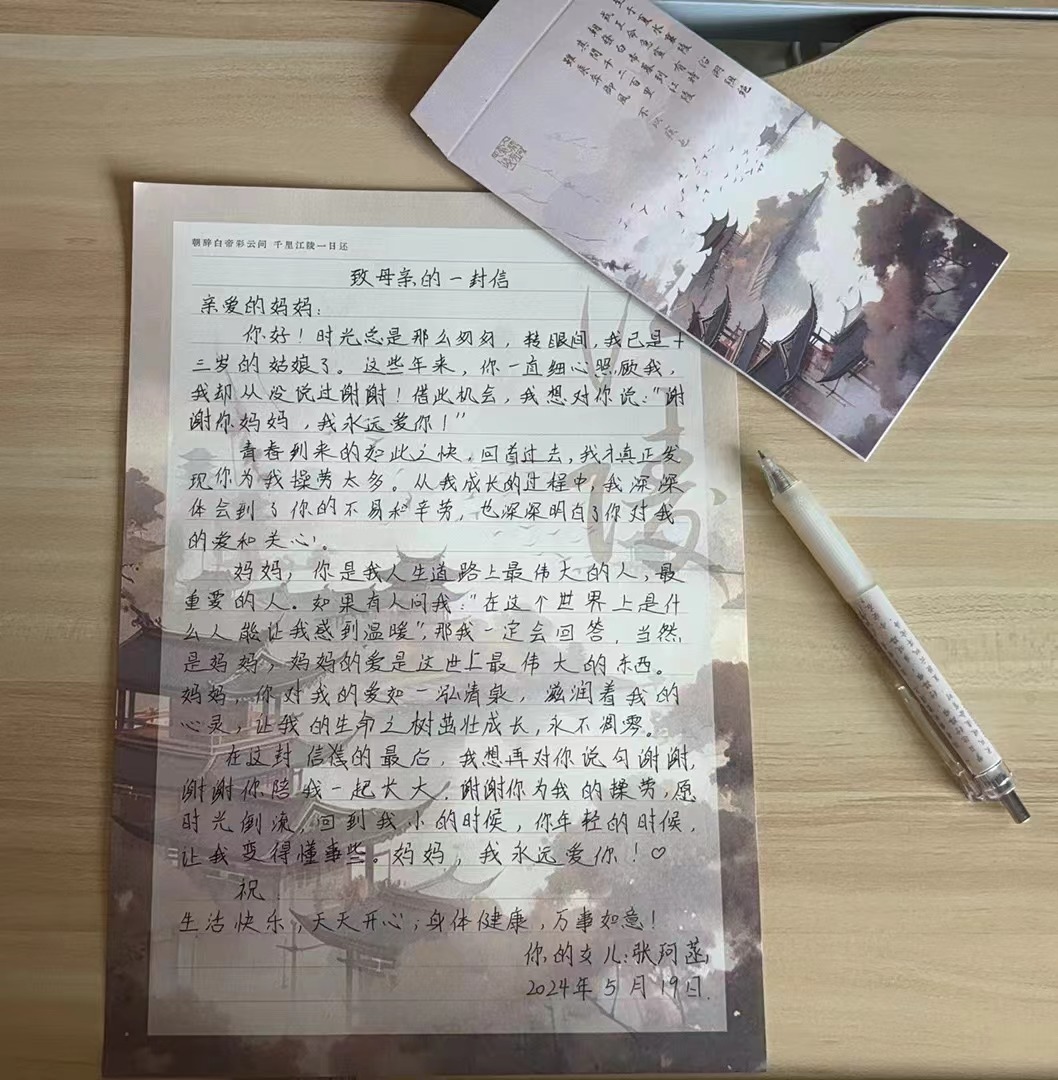 朝辞白帝彩云间 千里江陵一日还
致母亲的一封信
亲爱的妈妈：
你好！时光总是那么匆匆，转眼间，我已是十
三岁的姑娘了。这些年来，你一直细心照顾我，
我却从没说过谢谢！借此机会，我想对你说："谢
谢你妈妈，我永远爱你！"
青春到来的如此之快，回首过去，我才真正发
现你为我操劳太多。从我成长的过程中，我深深
体会到了你的不易和辛劳，也深深明白了你对我
的爱和关心。
妈妈，你是我人生道路上最伟大的人，最
重要的人。如果有人问我："在这个世界上是什
么人能让我感到温暖"，那我一定会回答，当然
是妈妈，妈妈的爱是这世上最伟大的东西。
妈妈，你对我的爱如一泓清泉，滋润着我的
心灵，让我的生命之树茁壮成长，永不凋零。
在这封信的最后，我想再对你说句谢谢，
谢谢你陪我一起长大，谢谢你为我的操劳，愿
时光倒流，回到我小的时候，你年轻的时候，
让我变得懂事些。妈妈，我永远爱你！♡
祝：
生活快乐，天天开心，身体健康，万事如意！
你的女儿：张珂菡
2024年5月19日
陵